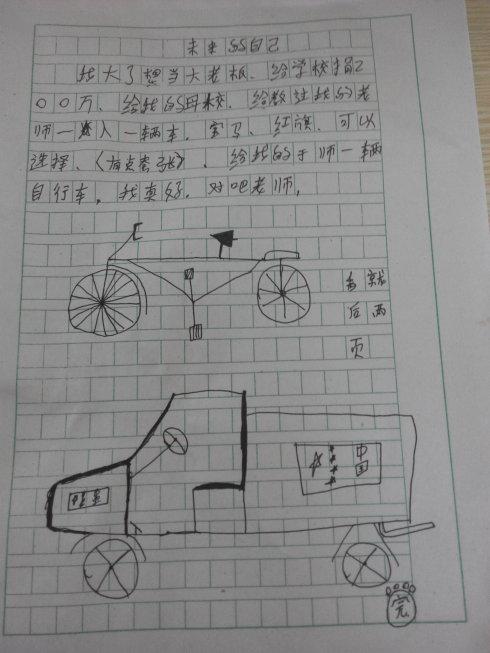 未来的自己
我大了想当大老板、给学校捐2
00万、给我的母校、给教过我的老
师一人一辆车、宝马、红旗、可以
选择、(有点夸张)、给我的于师一辆
自行车，我真好，对吧老师，
就
后两
页
中国
完